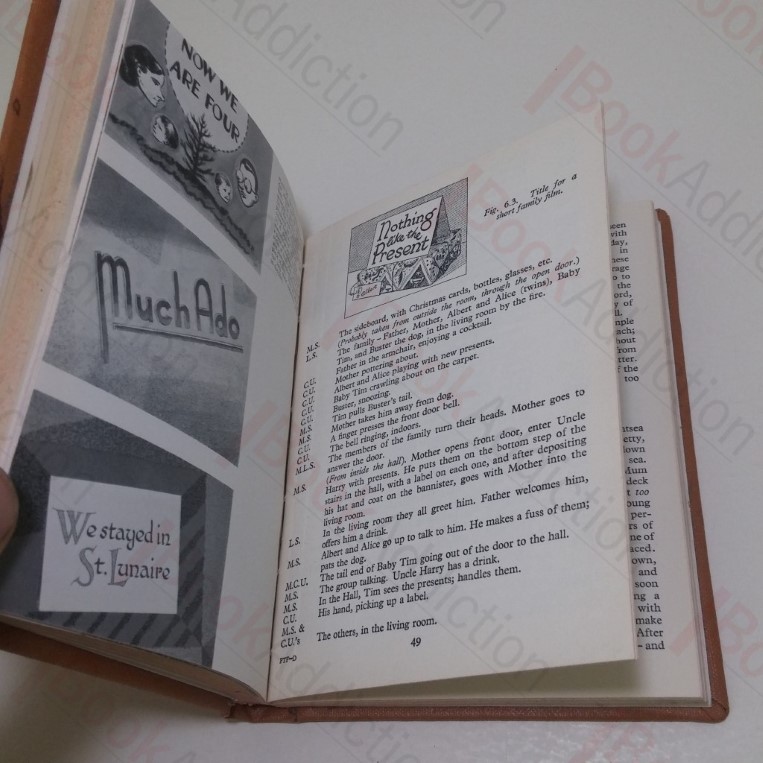 NOW WE
ARE FOUR
Much Ado
We stayed in
St. Lunaire
Nothing
like the
Present
Fig. 6.3. Title for a
short family film.
M.S. The sideboard, with Christmas cards, bottles, glasses, etc.
(Probably taken from outside the room, through the open door.)
L.S. The family – Father, Mother, Albert and Alice (twins), Baby
Tim, and Buster the dog, in the living room by the fire.
C.U. Father in the armchair, enjoying a cocktail.
C.U. Mother pottering about.
C.U. Albert and Alice playing with new presents.
C.U. Baby Tim crawling about on the carpet.
C.U. Buster, snoozing.
C.U. Tim pulls Buster's tail.
M.S. Mother takes him away from dog.
C.U. A finger presses the front door bell.
C.U. The bell ringing, indoors.
M.L.S. The members of the family turn their heads. Mother goes to
answer the door.
M.S. (From inside the hall). Mother opens front door, enter Uncle
Harry with presents. He puts them on the bottom step of the
stairs in the hall, with a label on each one, and after depositing
his hat and coat on the bannister, goes with Mother into the
living room.
L.S. In the living room they all greet him. Father welcomes him,
offers him a drink.
M.S. Albert and Alice go up to talk to him. He makes a fuss of them;
pats the dog.
M.C.U. The tail end of Baby Tim going out of the door to the hall.
M.S. The group talking. Uncle Harry has a drink.
M.S. In the Hall, Tim sees the presents; handles them.
C.U. His hand, picking up a label.
M.S. &
C.U.'s The others, in the living room.
FTF–D
49